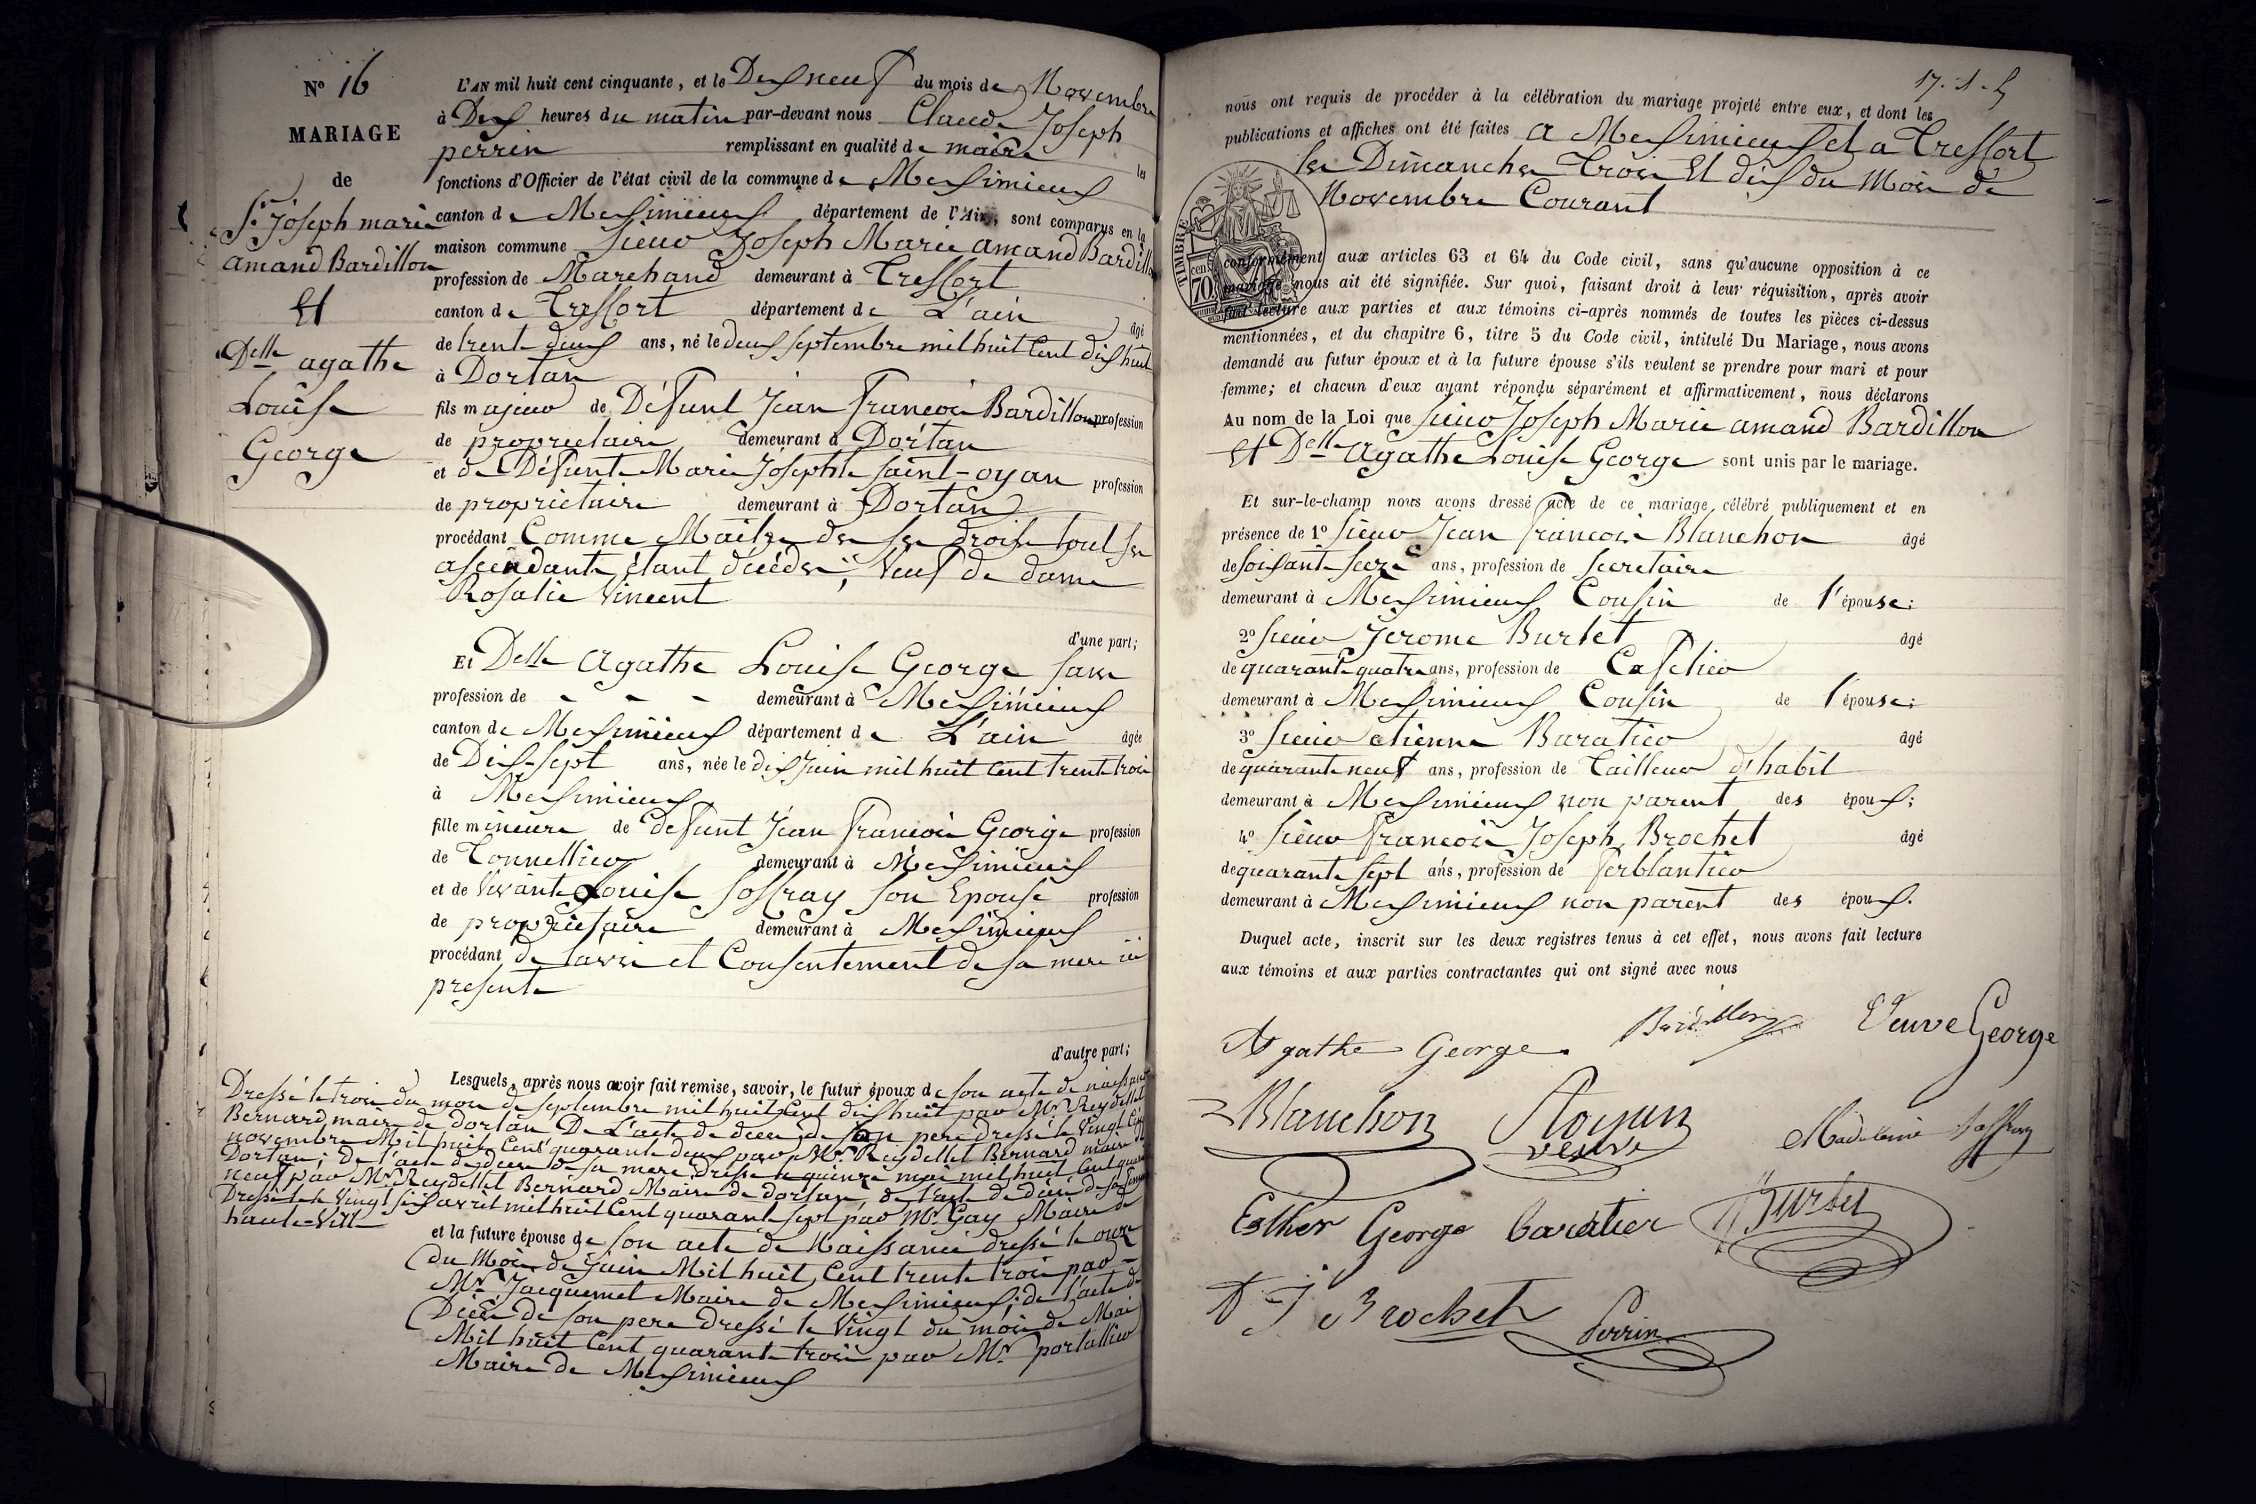 N° 16
MARIAGE
de
Sr Joseph marie
amand Bardillon
Et
Delle agathe
Louise
George
L'AN mil huit cent cinquante, et le Dixneuf du mois de Novembre
à Dix heures du matin par-devant nous Claude Joseph
perrin remplissant en qualité de maire les
fonctions d'Officier de l'état civil de la commune de Meximieux
canton de Meximieux département de l'Ain, sont comparus en la
maison commune Sieur Joseph Marie amand Bardillon
profession de Marchand demeurant à Treffort
canton de Treffort département de L'ain âgé
de trente deux ans, né le deux septembre mil huit Cent dix huit
à Dortan
fils majeur de Défunt Jean Francois Bardillon profession
de propriétaire demeurant à Dortan
et de Défunte Marie Josephte saint-oyan profession
de propriétaire demeurant à Dortan
procédant Comme Maitre de ses droits tout ses
ascendants étant décédés, Veuf de dame
Rosalie Vincent
d'une part;
Et Delle Agathe Louise George sans
profession de - - - demeurant à Meximieux
canton de Meximieux département de L'ain âgée
de Dix-sept ans, née le dix Juin mil huit Cent trente trois
à Meximieux
fille mineure de defunt Jean Francois George profession
de Tonnellier demeurant à Meximieux
et de Vivante Louise Soffray son Epouse profession
de propriétaire demeurant à Meximieux
procédant de l'avis et Consentement de sa mere ici
presente
d'autre part;
Lesquels, après nous avoir fait remise, savoir, le futur époux de son acte de naissance
Dressé le trois du mois de septembre mil huit Cent dix huit par Mr Reydellet
Bernard maire de dortan De L'acte de décès de son pere dressé le Vingt
novembre Mil huit Cent quarante deux par Mr Reydellet Bernard maire de
Dortan; de l'acte de décès de sa mere dressé le quinze mai mil huit Cent
neuf par Mr Reydellet Bernard Maire de dortan, de l'acte de décès de sa femme
Dressé le Vingt six avril mil huit Cent quarante sept par Mr Gay Maire de
haute-Ville
et la future épouse de son acte de Naissance dressé le onze
du Mois de Juin Mil huit Cent trente trois par
Mr Jacquemet Maire de Meximieux; de l'acte de
Décès de son pere dressé le Vingt du mois de Mai
Mil huit Cent quarante trois par Mr portallier
Maire de Meximieux
nous ont requis de procéder à la célébration du mariage projeté entre eux, et dont les
publications et affiches ont été faites a Meximieux et a Treffort
les Dimanches trois Et dix du Mois de
Novembre Courant
TIMBRE
70
conformément aux articles 63 et 64 du Code civil, sans qu'aucune opposition à ce
mariage nous ait été signifiée. Sur quoi, faisant droit à leur réquisition, après avoir
fait lecture aux parties et aux témoins ci-après nommés de toutes les pièces ci-dessus
mentionnées, et du chapitre 6, titre 5 du Code civil, intitulé Du Mariage, nous avons
demandé au futur époux et à la future épouse s'ils veulent se prendre pour mari et pour
femme; et chacun d'eux ayant répondu séparément et affirmativement, nous déclarons
Au nom de la Loi que Sieur Joseph Marie amand Bardillon
Et Delle Agathe Louise George sont unis par le mariage.
Et sur-le-champ nous avons dressé acte de ce mariage célébré publiquement et en
présence de 1° Sieur Jean francois Blanchon âgé
de soixante seeze ans, profession de Secretaire
demeurant à Meximieux Cousin de l'épouse;
2° Sieur Jerome Burtet âgé
de quarante quatre ans, profession de Cafetier
demeurant à Meximieux Cousin de l'épouse;
3° Sieur etienne Baratier âgé
de quarante neuf ans, profession de Tailleur d'habit
demeurant à Meximieux non parent des époux;
4° Sieur francois Joseph Brochet âgé
de quarante sept ans, profession de ferblantier
demeurant à Meximieux non parent des époux.
Duquel acte, inscrit sur les deux registres tenus à cet effet, nous avons fait lecture
aux témoins et aux parties contractantes qui ont signé avec nous
Agathe George Bardillon Veuve George
Blanchon veuve Madeleine Soffray
Esther George baratier Burtet
F J Brochet Perrin